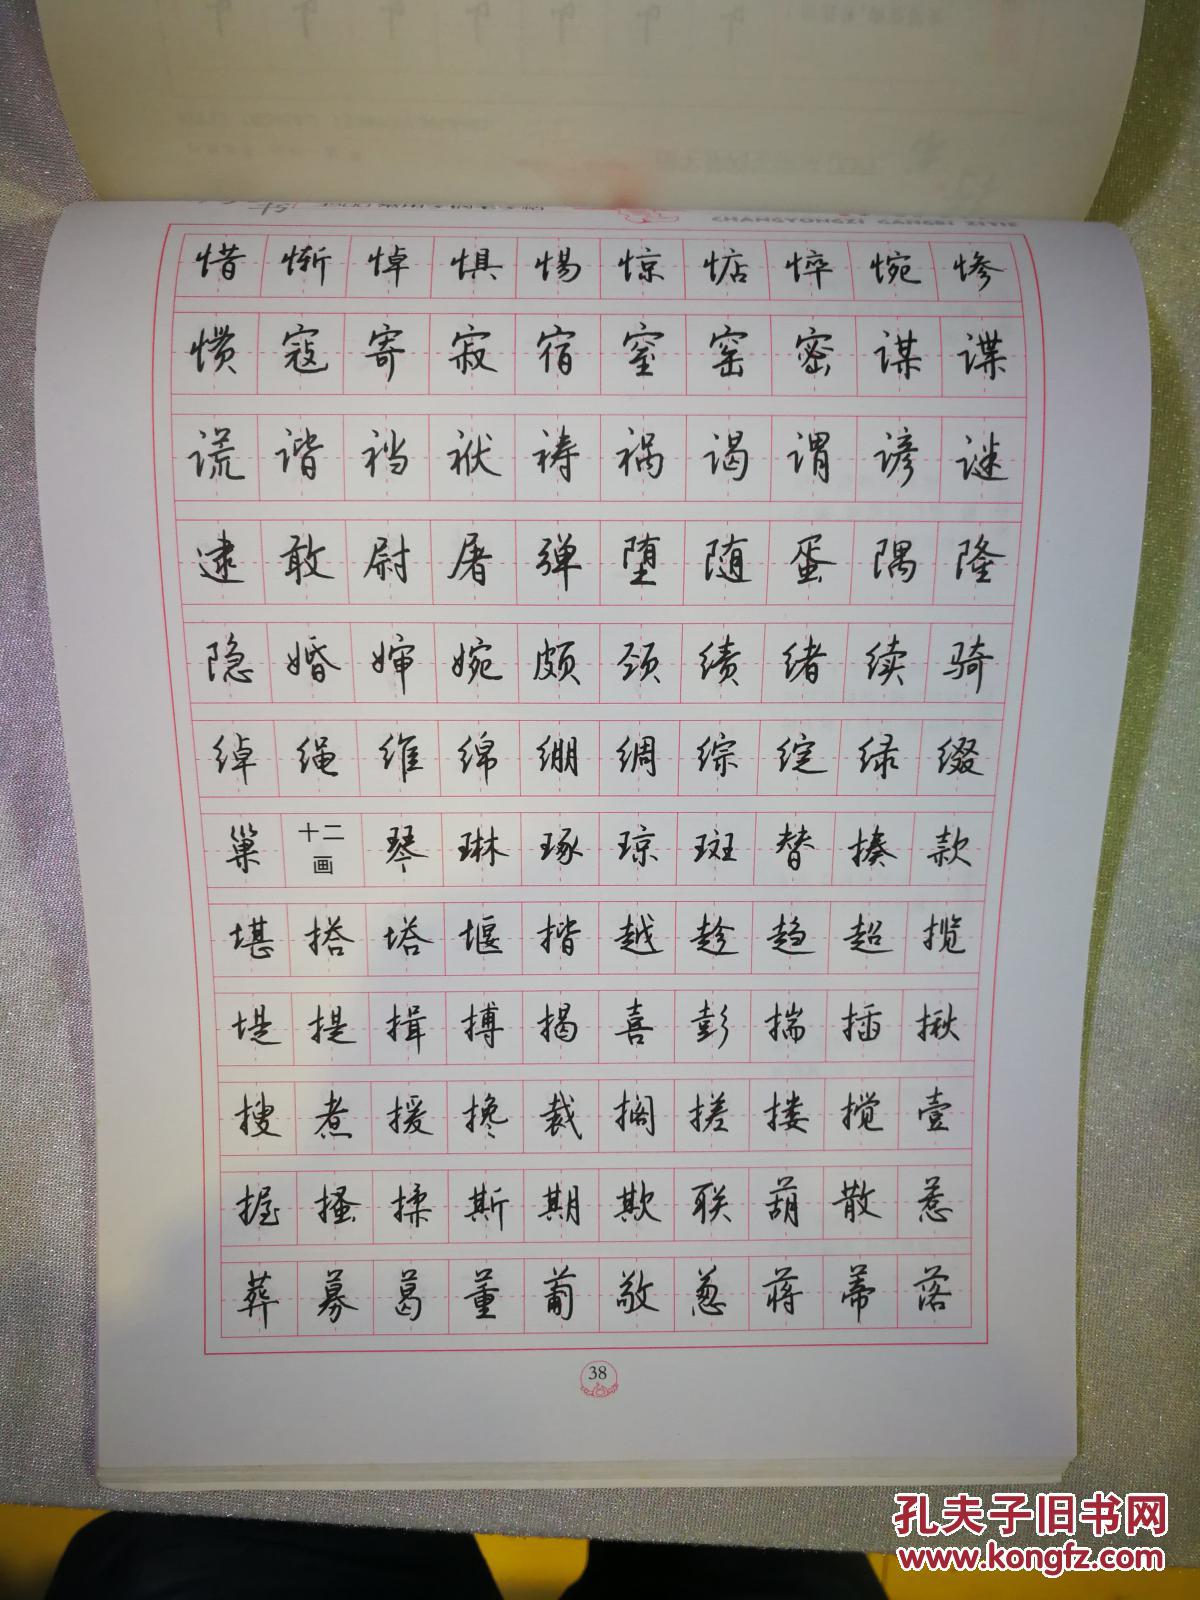 CHANGYONGZI GANGBI ZITIE
惜 惭 悼 惧 惕 惊 惦 悴 惋 惨
惯 寇 寄 寂 宿 窒 窑 密 谋 谍
谎 谐 裆 袱 祷 祸 谒 谓 谚 谜
逮 敢 尉 屠 弹 堕 随 蛋 隅 隆
隐 婚 婶 婉 颇 颈 绩 绪 续 骑
绰 绳 维 绵 绷 绸 综 绽 绿 缀
巢 十二画 琴 琳 琢 琼 斑 替 揍 款
堪 搭 塔 堰 揩 越 趁 趋 超 揽
堤 提 揖 搏 揭 喜 彭 揣 插 揪
搜 煮 援 搀 裁 搁 搓 搂 搅 壹
握 搔 揉 斯 期 欺 联 葫 散 惹
葬 募 葛 董 葡 敬 葱 蒋 蒂 落
38
孔夫子旧书网
www.kongfz.com